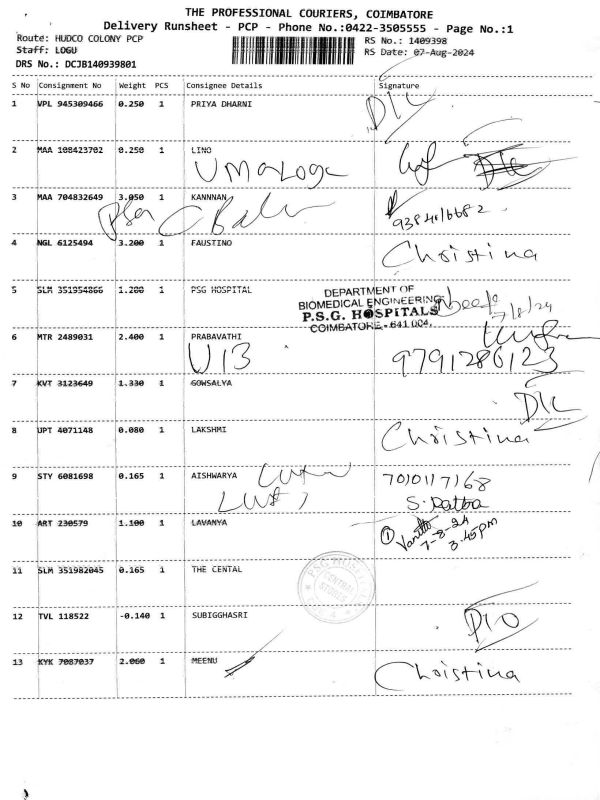 THE PROFESSIONAL COURIERS, COIMBATORE
Delivery Runsheet - PCP - Phone No.:0422-3505555 - Page No.:1
Route: HUDCO COLONY PCP RS No.: 1409398
Staff: LOGU RS Date: 07-Aug-2024
DRS No.: DCJB140939801
S No Consignment No Weight PCS Consignee Details Signature
1 VPL 945309466 0.250 1 PRIYA DHARNI
2 MAA 108423702 0.250 1 LINO
3 MAA 704832649 3.050 1 KANNNAN
4 NGL 6125494 3.200 1 FAUSTINO Christina
5 SLM 351954866 1.200 1 PSG HOSPITAL
DEPARTMENT OF
BIOMEDICAL ENGINEERING
P.S.G. HOSPITALS
COIMBATORE - 641 004.
7/8/24
6 MTR 2489031 2.400 1 PRABAVATHI
9791286123
7 KVT 3123649 1.330 1 GOWSALYA
8 UPT 4071148 0.080 1 LAKSHMI Christina
9 STY 6081698 0.165 1 AISHWARYA 7010117168
10 ART 230579 1.100 1 LAVANYA
7-8-24
3.45pm
11 SLM 351982045 0.165 1 THE CENTAL
PSG HOSPITALS
CENTRAL
STORES
12 TVL 118522 -0.140 1 SUBIGGHASRI
13 KYK 7087037 2.060 1 MEENU Christina